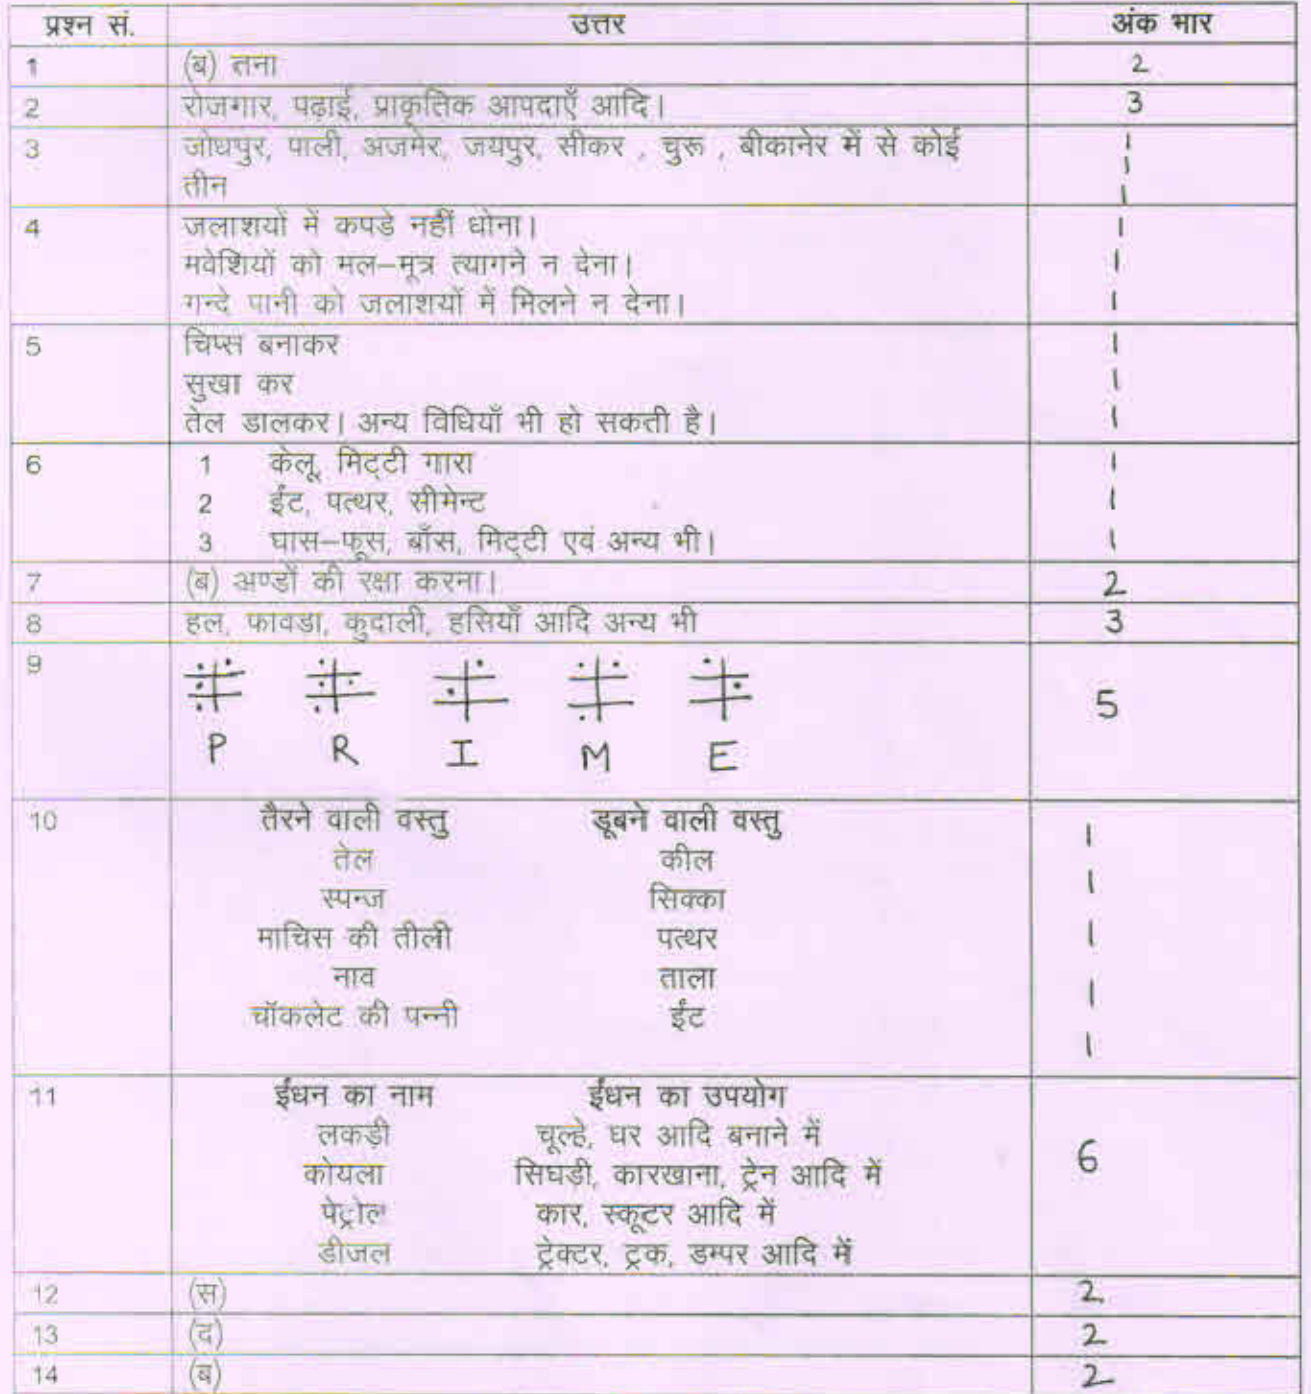 प्रश्न सं. उत्तर अंक भार
1 (ब) तना 2
2 रोजगार, पढ़ाई, प्राकृतिक आपदाएँ आदि। 3
3 जोधपुर, पाली, अजमेर, जयपुर, सीकर , चुरू , बीकानेर में से कोई 1
1
तीन 1
4 जलाशयों में कपडे नहीं धोना। 1
मवेशियों को मल–मूत्र त्यागने न देना। 1
गन्दे पानी को जलाशयों में मिलने न देना। 1
5 चिप्स बनाकर 1
सुखा कर 1
तेल डालकर। अन्य विधियाँ भी हो सकती है। 1
6 1 केलू, मिट्टी गारा 1
2 ईंट, पत्थर, सीमेन्ट 1
3 घास–फूस, बाँस, मिट्टी एवं अन्य भी। 1
7 (ब) अण्डों की रक्षा करना। 2
8 हल, फावडा, कुदाली, हसियाँ आदि अन्य भी 3
9 5
P R I M E
10 तैरने वाली वस्तु डूबने वाली वस्तु 1
तेल कील 1
स्पन्ज सिक्का 1
माचिस की तीली पत्थर 1
नाव ताला 1
चॉकलेट की पन्नी ईंट
11 ईंधन का नाम ईंधन का उपयोग
लकड़ी चूल्हे, घर आदि बनाने में
कोयला सिघडी, कारखाना, ट्रेन आदि में 6
पेट्रोल कार, स्कूटर आदि में
डीजल ट्रेक्टर, ट्रक, डम्पर आदि में
12 (स) 2
13 (द) 2
14 (ब) 2